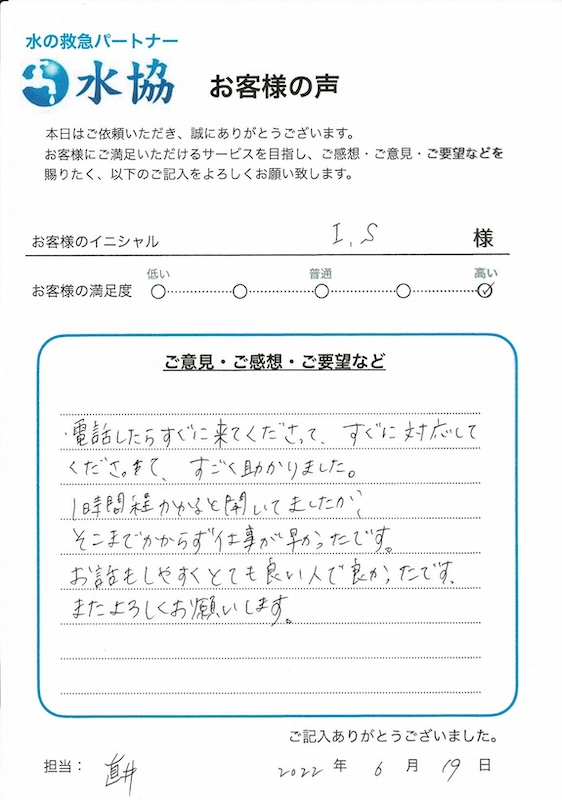 水の救急パートナー
水協 お客様の声
本日はご依頼いただき、誠にありがとうございます。
お客様にご満足いただけるサービスを目指し、ご感想・ご意見・ご要望などを
賜りたく、以下のご記入をよろしくお願い致します。
お客様のイニシャル I.S 様
低い 普通 高い
お客様の満足度
ご意見・ご感想・ご要望など
・電話したらすぐに来てくださって、すぐに対応して
くださって、すごく助かりました。
1時間程かかると聞いてましたが、
そこまでかからず仕事が早かったです。
お話もしやすくとても良い人で良かったです、
またよろしくお願いします。
ご記入ありがとうございました。
担当： 直井 2022 年 6 月 19 日